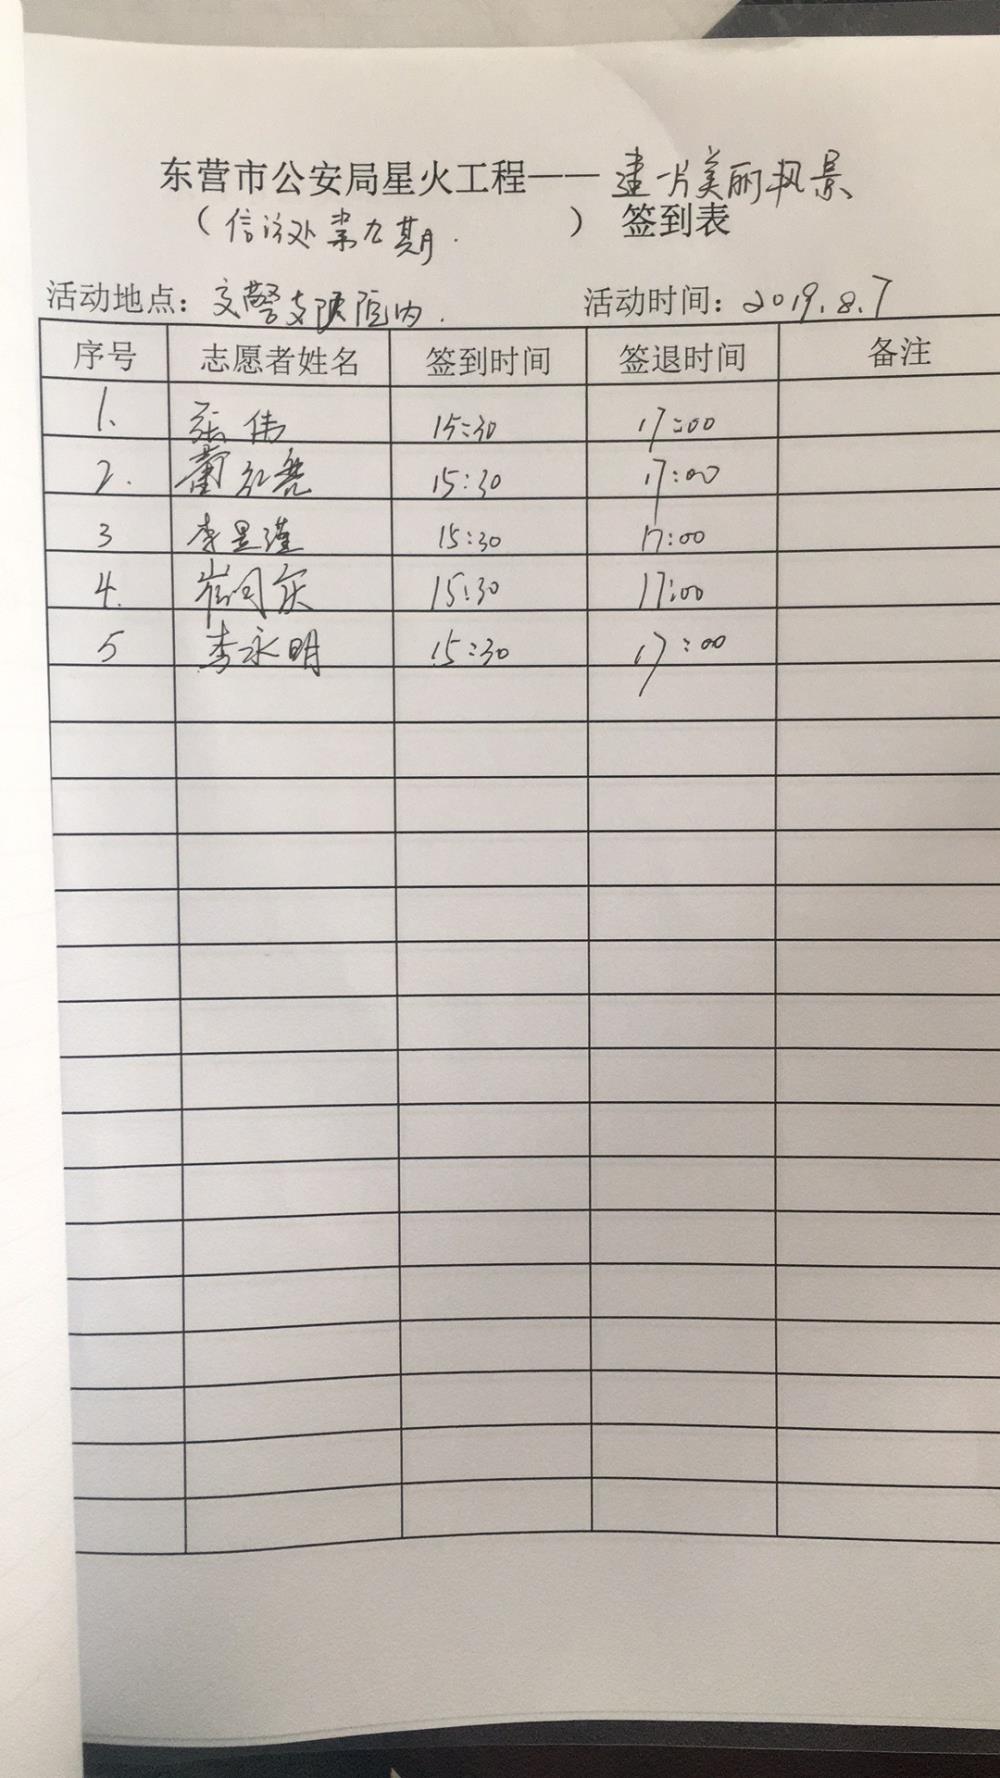 东营市公安局星火工程——建一片美丽风景
（信访处第九期.）签到表
活动地点：交警支队院内. 活动时间：2019.8.7
序号 志愿者姓名 签到时间 签退时间 备注
1. 张伟 15:30 17:00
2. 15:30 17:00
3 李昱瑾 15:30 17:00
4. 崔同庆 15:30 17:00
5 李永明 15:30 17:00